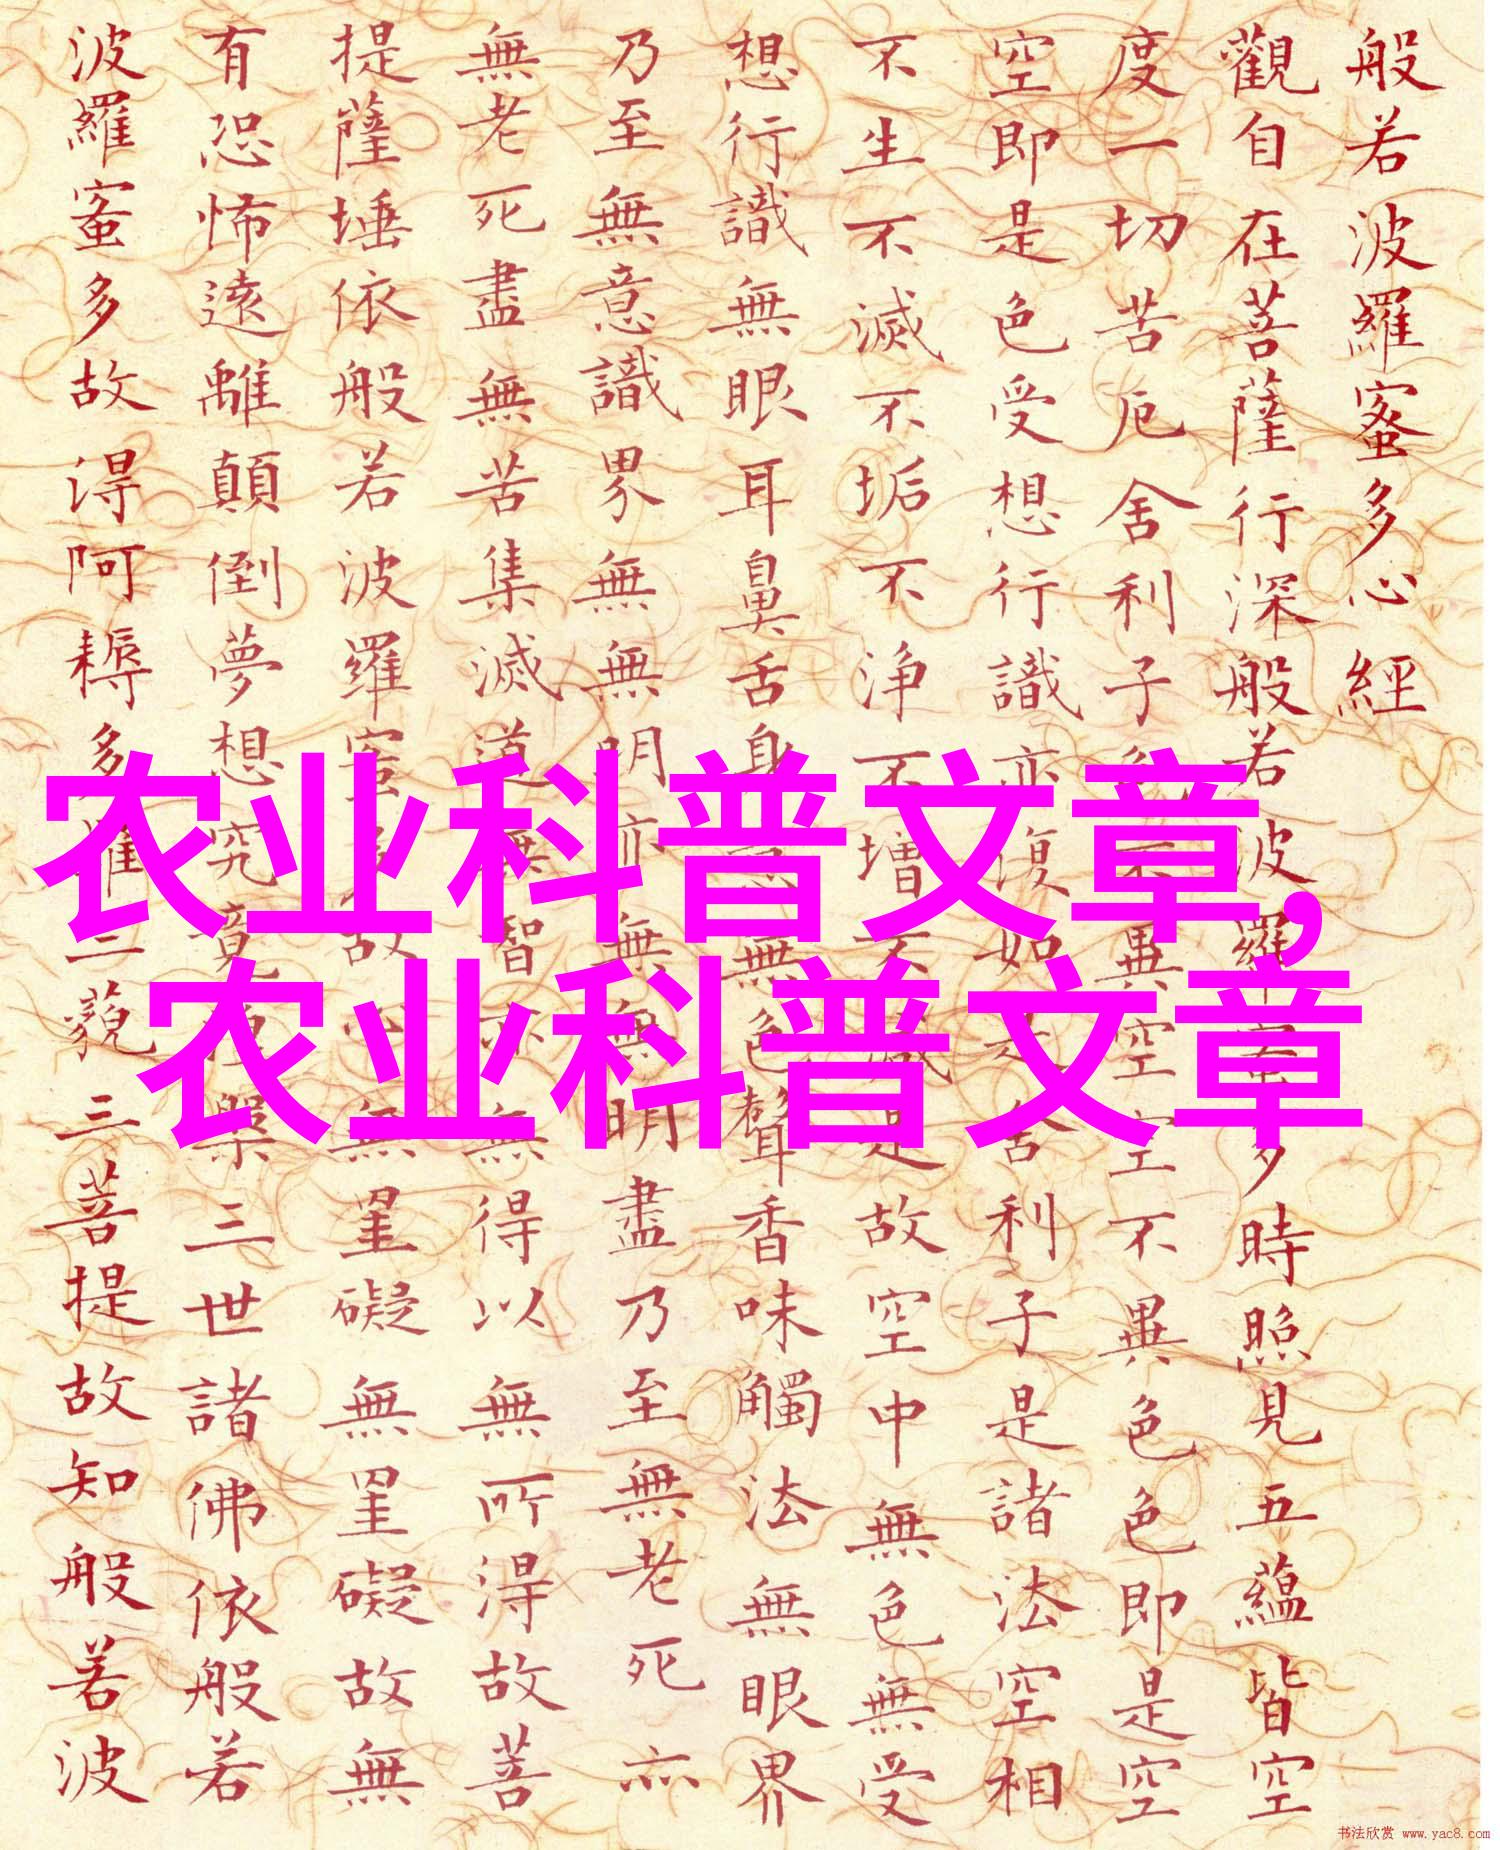 般若波羅蜜多心經
觀自在菩薩行深般若波羅蜜多時照見五蘊皆空
度一切苦厄舍利子色不異空空不異色色即是空
空即是色受想行識亦復如是舍利子是諸法空相
不生不滅不垢不浄不增不減是故空中無色無受
想行識無眼耳鼻舌身意無色聲香味觸法無眼界
乃至無意識界無無明亦無無明盡乃至無老死亦
無老死盡無苦集滅道無智亦無得以無所得故菩
提薩埵依般若波羅蜜多故心無罣礙無罣礙故無
有恐怖遠離顛倒夢想究竟涅槃三世諸佛依般若
波羅蜜多故得阿耨多羅三藐三菩提故知般若波
农业科普文章,
农业科普文章
书法欣赏 www.yac8.com